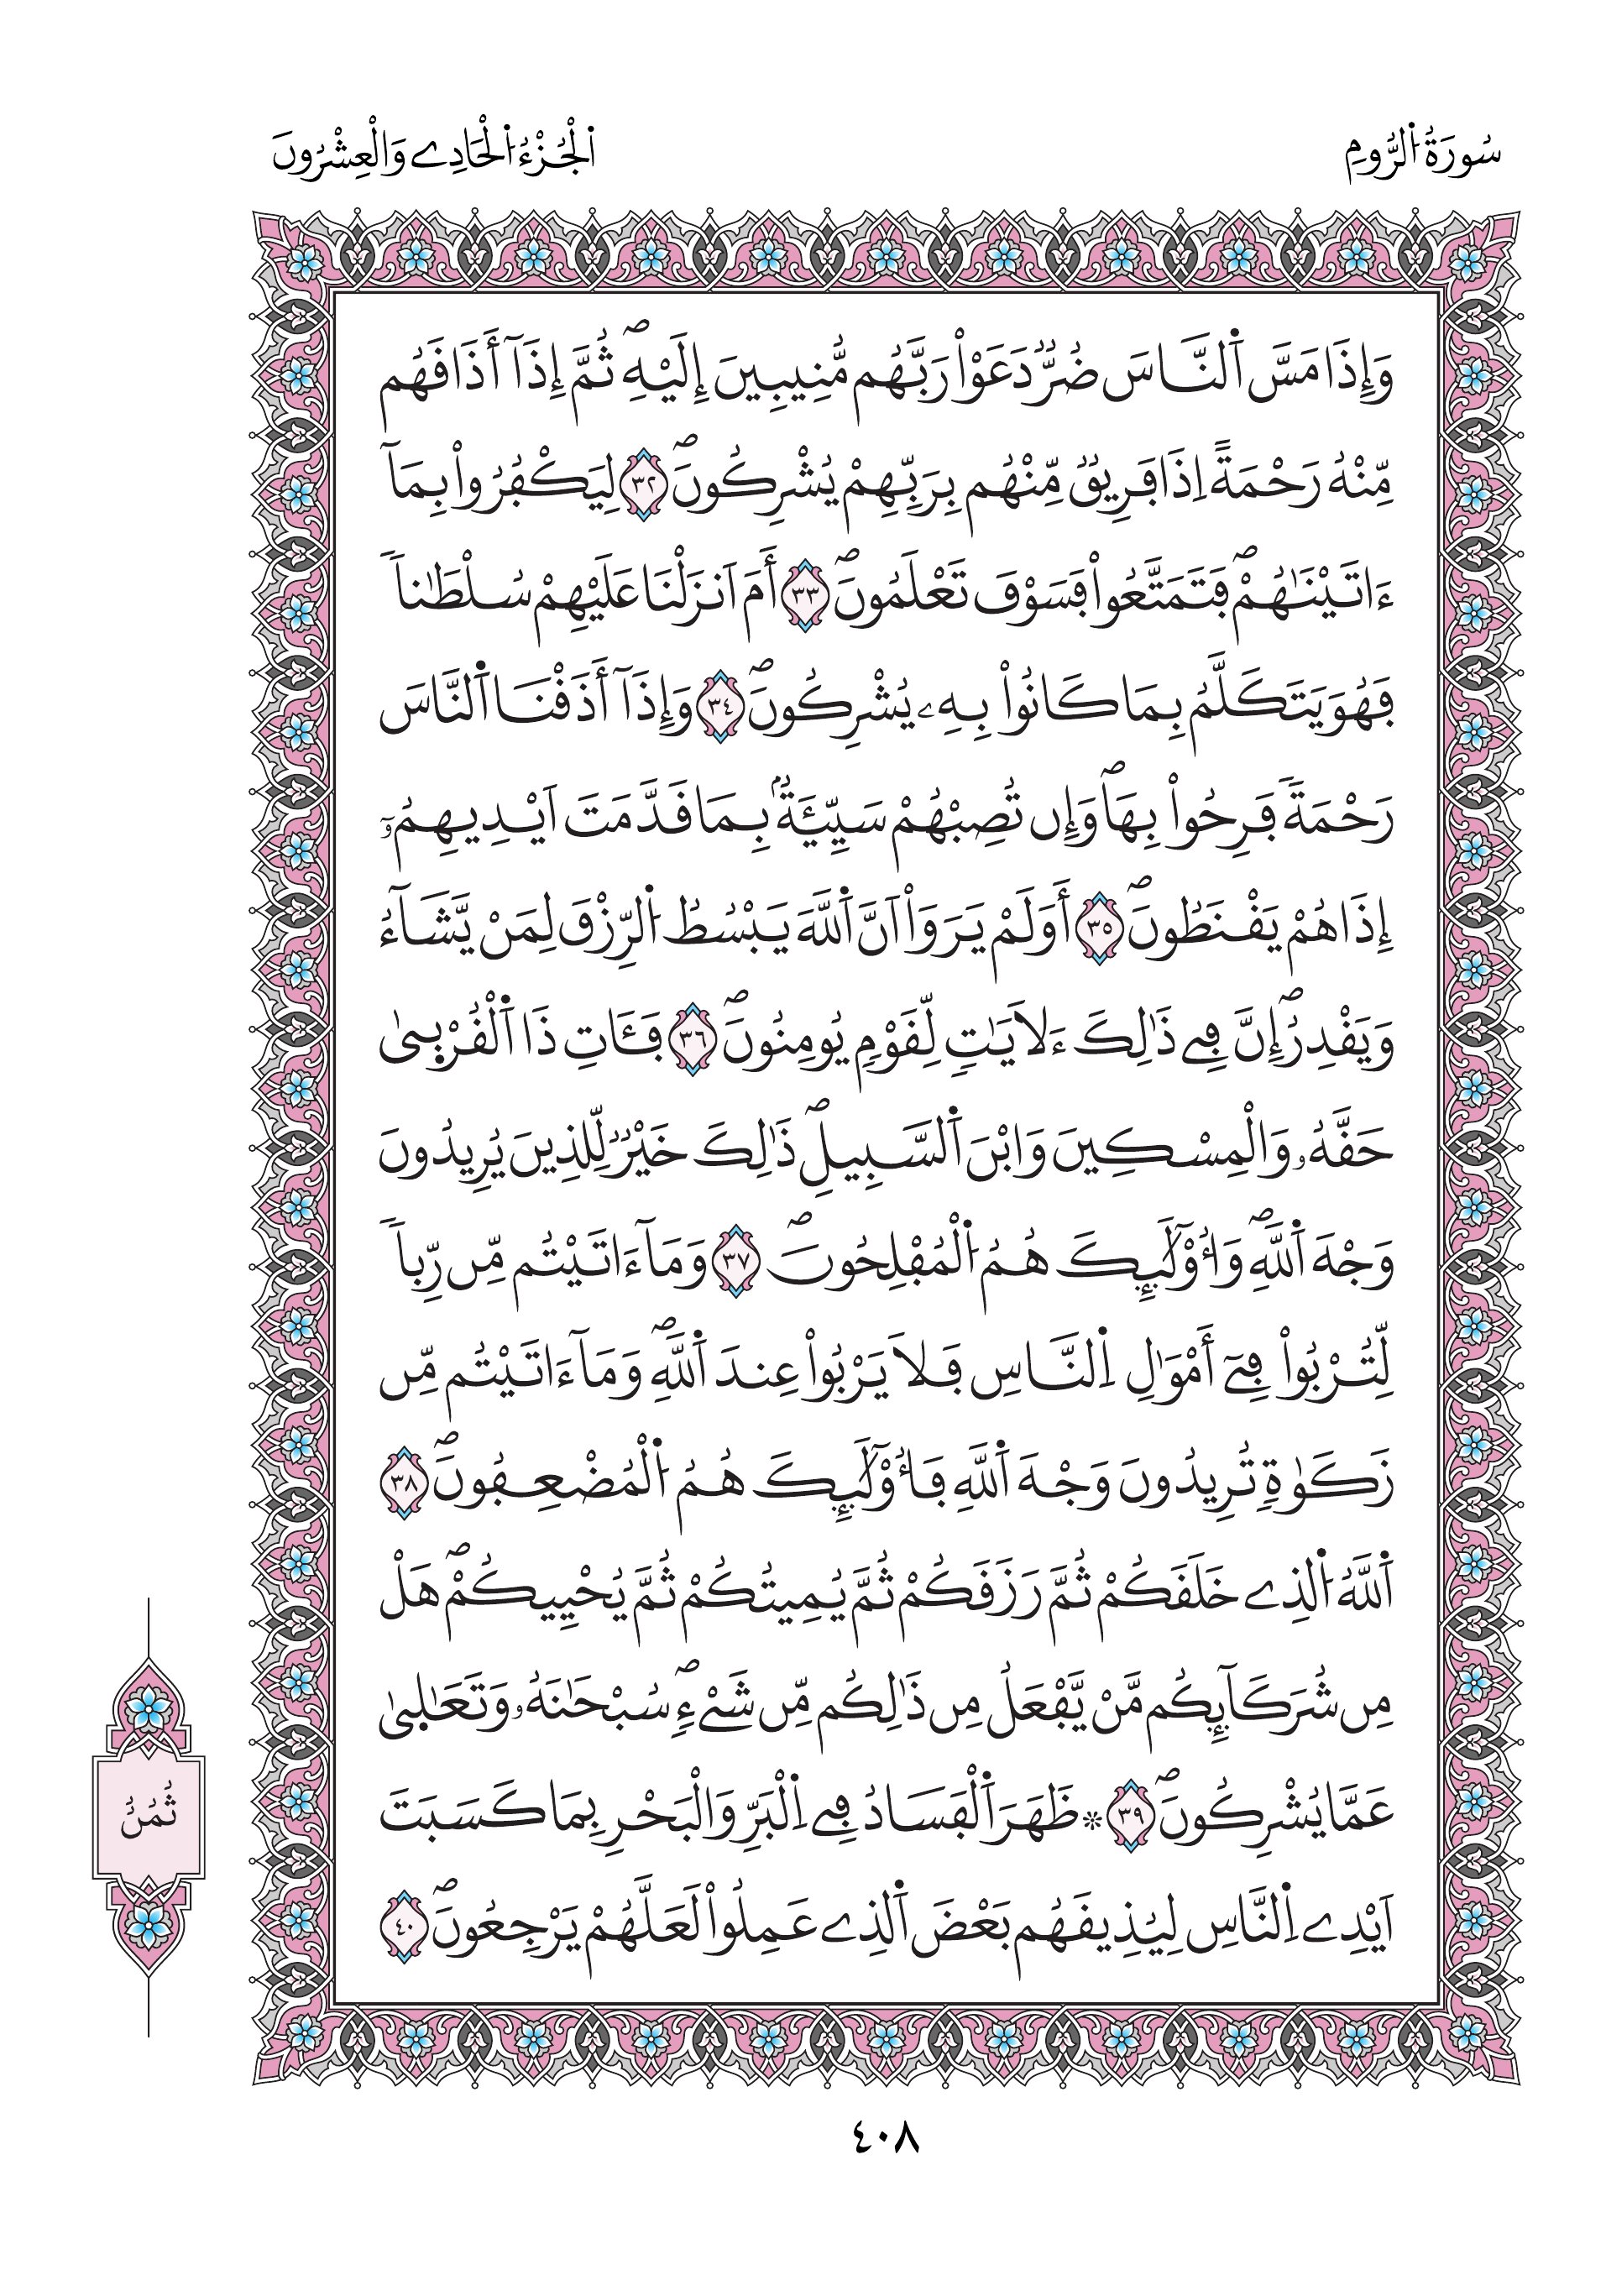 سُورَةُ اُ۬لرُّومِ
اَ۬لْجُزْءُ اُ۬لْحَادِے وَالْعِشْرُونَ
وَإِذَا مَسَّ اَ۬لنَّاسَ ضُرّٞ دَعَوْاْ رَبَّهُم مُّنِيبِينَ إِلَيْهِۖ ثُمَّ إِذَآ أَذَاقَهُم
مِّنْهُ رَحْمَةً اِذَا فَرِيقٞ مِّنْهُم بِرَبِّهِمْ يُشْرِكُونَۖ ٣٢ لِيَكْفُرُواْ بِمَآ
ءَاتَيْنَٰهُمْۖ فَتَمَتَّعُواْ فَسَوْفَ تَعْلَمُونَۖ ٣٣ أَمَ اَنزَلْنَا عَلَيْهِمْ سُلْطَٰناٗ
فَهُوَ يَتَكَلَّمُ بِمَا كَانُواْ بِهِۦ يُشْرِكُونَۖ ٣٤ وَإِذَآ أَذَقْنَا اَ۬لنَّاسَ
رَحْمَةٗ فَرِحُواْ بِهَاۖ وَإِن تُصِبْهُمْ سَيِّئَةُۢ بِمَا قَدَّمَتَ اَيْدِيهِمُۥٓ
إِذَا هُمْ يَقْنَطُونَۖ ٣٥ أَوَلَمْ يَرَوَاْ اَنَّ اَ۬للَّهَ يَبْسُطُ اُ۬لرِّزْقَ لِمَنْ يَّشَآءُ
وَيَقْدِرُۖ إِنَّ فِے ذَٰلِكَ ءَلَايَٰتٖ لِّقَوْمٖ يُومِنُونَۖ ٣٦ فَـَٔاتِ ذَا اَ۬لْقُرْب۪ىٰ
حَقَّهُۥ وَالْمِسْكِينَ وَابْنَ اَ۬لسَّبِيلِۖ ذَٰلِكَ خَيْرٞ لِّلذِينَ يُرِيدُونَ
وَجْهَ اَ۬للَّهِۖ وَأُوْلَٰٓئِكَ هُمُ اُ۬لْمُفْلِحُونَۖ ٣٧ وَمَآ ءَاتَيْتُم مِّن رِّباٗ
لِّتُرْبُواْ فِےٓ أَمْوَٰلِ اِ۬لنَّاسِ فَلَا يَرْبُواْ عِندَ اَ۬للَّهِۖ وَمَآ ءَاتَيْتُم مِّن
زَكَوٰةٖ تُرِيدُونَ وَجْهَ اَ۬للَّهِ فَأُوْلَٰٓئِكَ هُمُ اُ۬لْمُضْعِفُونَۖ ٣٨
اَ۬للَّهُ اُ۬لذِے خَلَقَكُمْ ثُمَّ رَزَقَكُمْ ثُمَّ يُمِيتُكُمْ ثُمَّ يُحْيِيكُمْۖ هَلْ
مِن شُرَكَآئِكُم مَّنْ يَّفْعَلُ مِن ذَٰلِكُم مِّن شَےْءٖۖ سُبْحَٰنَهُۥ وَتَعَٰل۪ىٰ
عَمَّا يُشْرِكُونَۖ ٣٩ ۞ ظَهَرَ اَ۬لْفَسَادُ فِے اِ۬لْبَرِّ وَالْبَحْرِ بِمَا كَسَبَتَ
اَيْدِے اِ۬لنَّاسِ لِيُذِيقَهُم بَعْضَ اَ۬لذِے عَمِلُواْ لَعَلَّهُمْ يَرْجِعُونَۖ ٤٠
ثُمُنُ
٤٠٨